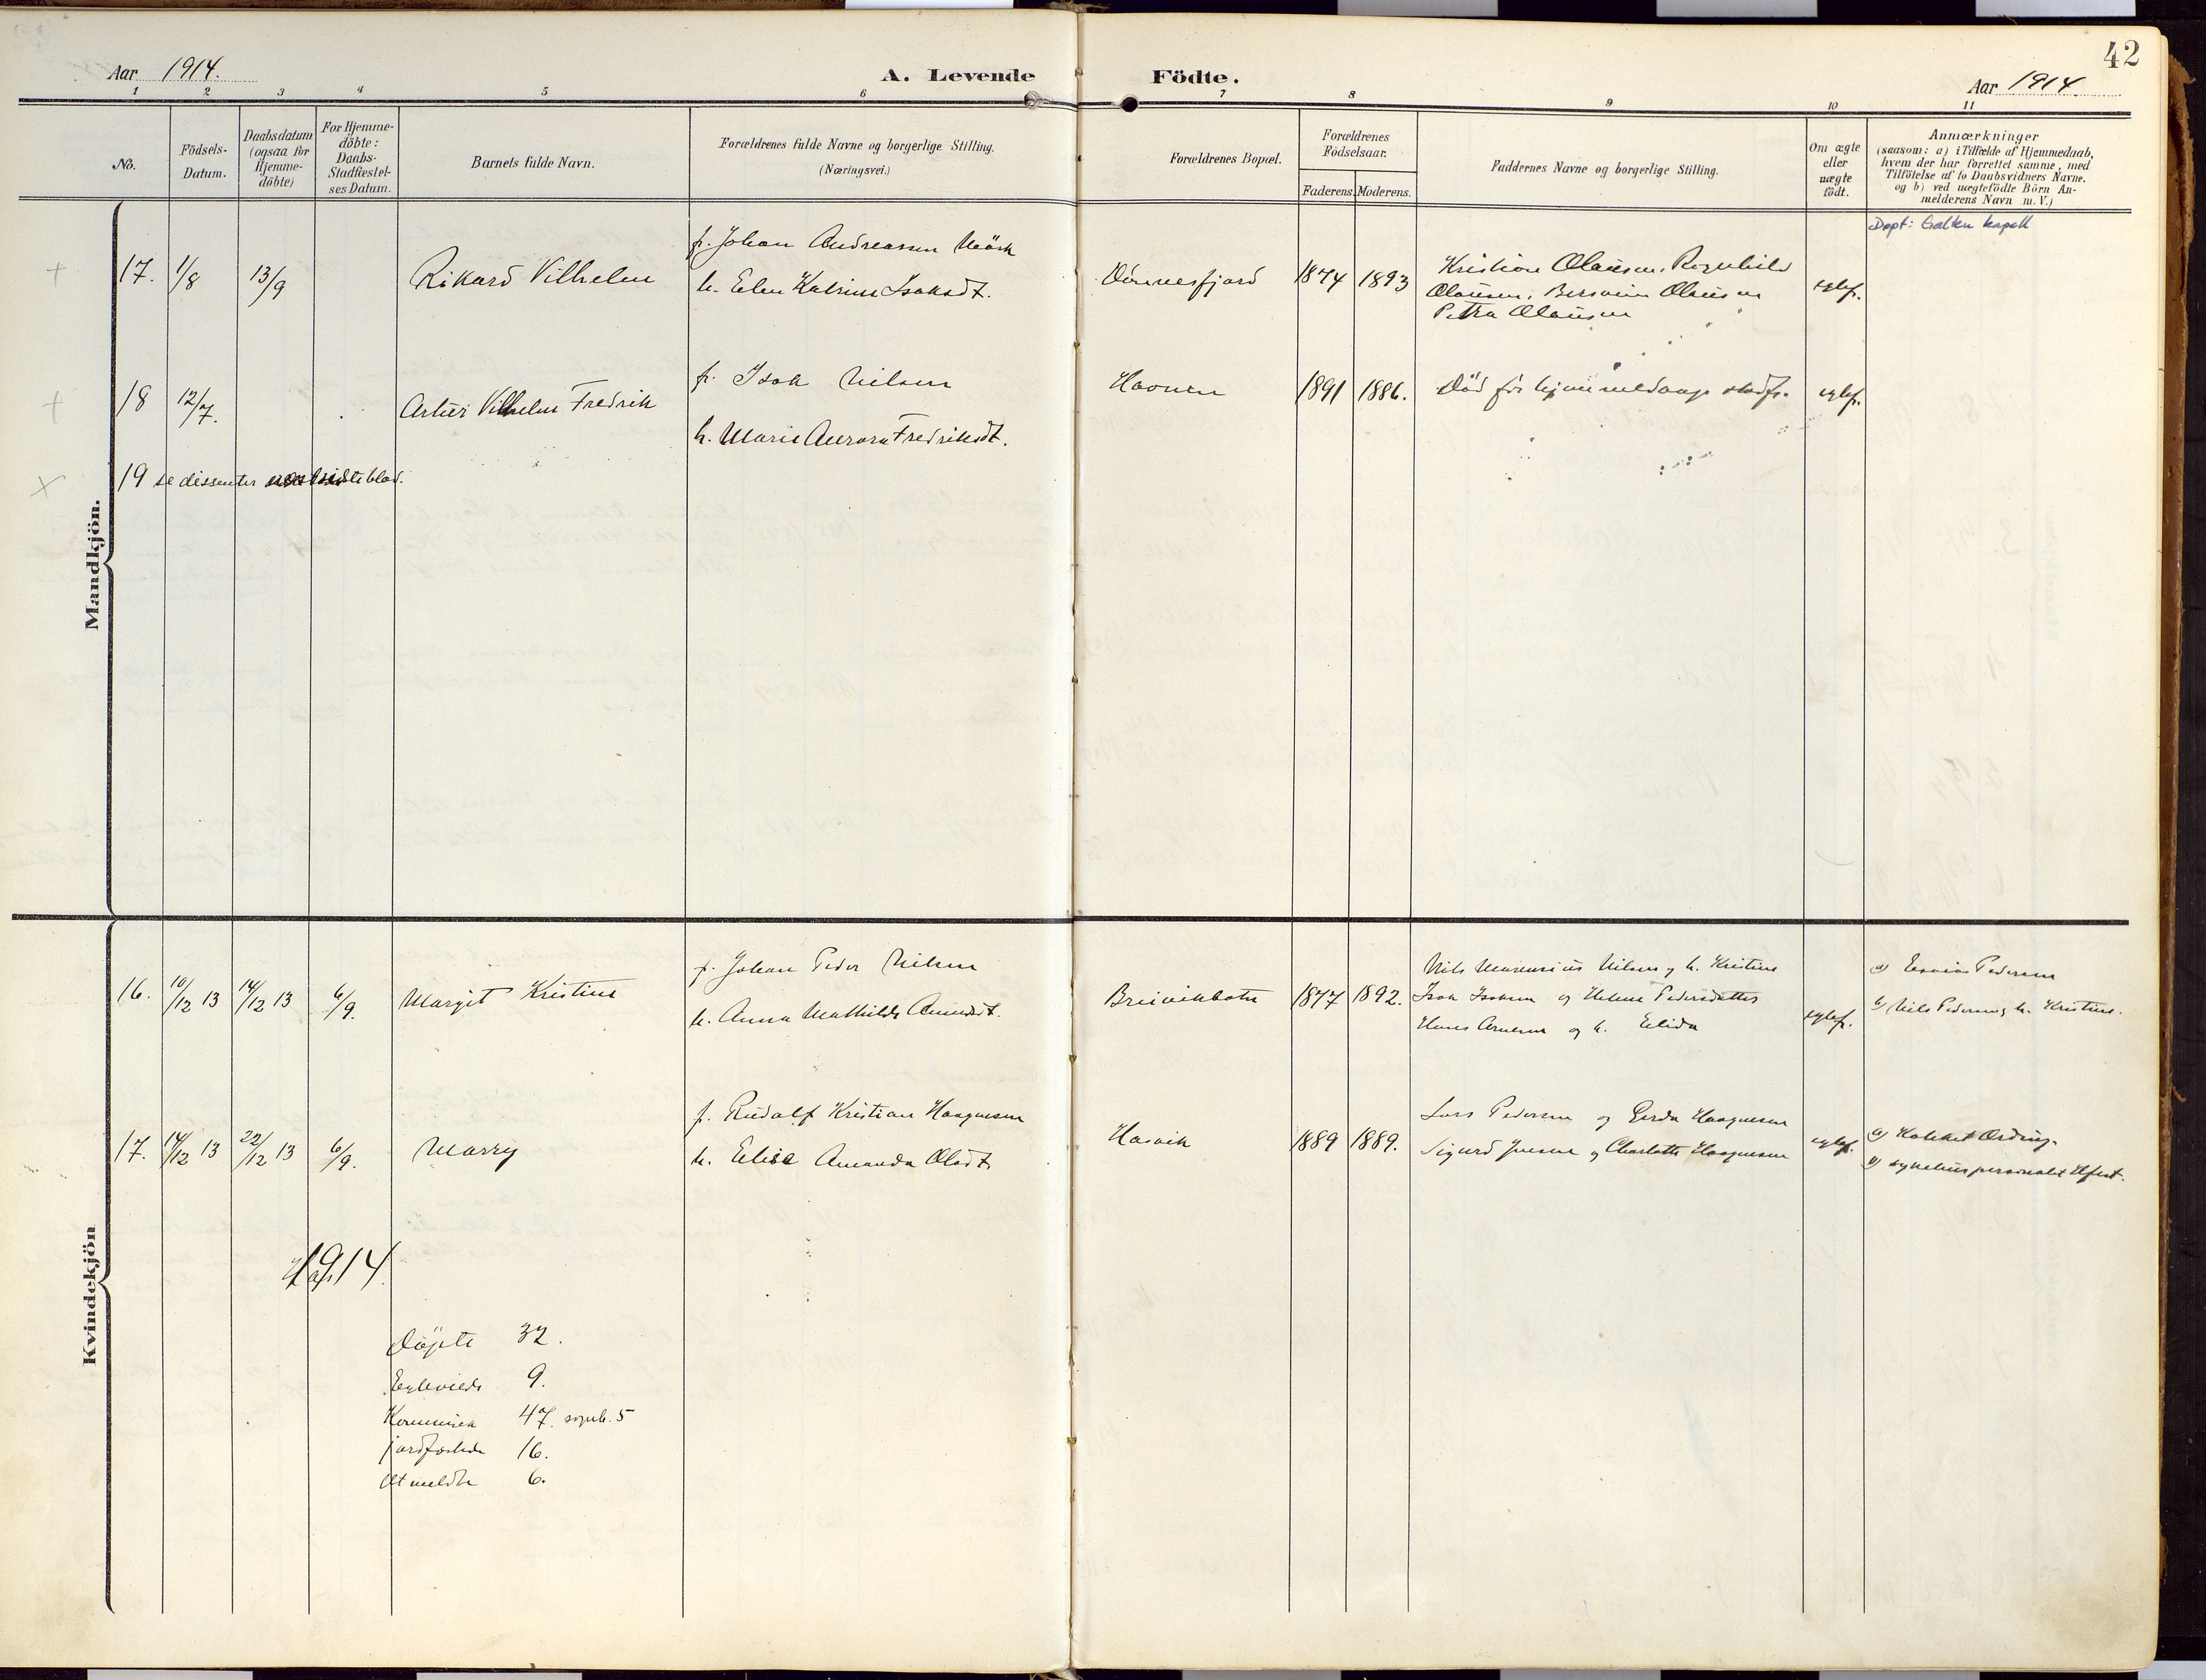 42
Aar 1914.
A. Levende Födte.
Aar 1914.
1 2 3 4 5 6 7 8 9 10 11
No.
Födsels-Datum.
Daabsdatum (ogsaa for Hjemme-döbte)
For Hjemme-döbte: Daabs-Stadfæstel-ses Datum.
Barnets fulde Navn.
Forældrenes fulde Navne og borgerlige Stilling.
(Næringsvei.)
Forældrenes Bopæl.
Forældrenes Födselsaar.
Faderens. Moderens.
Faddernes Navne og borgerlige Stilling.
Om ægte eller uægte födt.
Anmærkninger
(saasom: a) i Tilfælde af Hjemmedaab,
hvem der har forrettet samme, med
Tilföielse af to Daabsvidners Navne.
og b) ved uægtefödte Börn An-
melderens Navn m. V.)
Mandkjön.
Döpt: Galten kapell
f. Johan Andreassen Mörk
17. 1/8 13/9 Rikard Vilhelm
h. Elen Katrine Isaksdt.
Dönnesfjord 1874 1893
Kristian Olausen, Ragnhild
Olausen, Olausen
Petra Olausen
egtef.
f. Isak Nilsen
18 12/7. Artur Vilhelm Fredrik
h. Marie Aurora Fredriksdt.
Haonen 1891 1886. Död för hjemmedaaps stadf. egtef.
19 se dissenter
Kvindekjön
f. Johan Peder Nilsen
16. 10/12 13 14/12 13 6/9. Margit Kristine
h. Anna Mathilde
Breivikbotn 1877 1892.
Nils Marensius Nilsen og h. Kristine
Isak Isaksen og Helene Pedersdatter
Hans Arnesen og h. Elida
egtef.
a) Pedersen
b) Nils Pedersen og h. Kristine.
f. Rudolf Kristian Haagensen
17. 14/12 13 22/12 13 6/9. Marry
h. Elise Amanda Olsdt.
Hasvik 1889 1889.
Lars Pedersen og Gerda Haagensen
Sigurd Jensen og Charlotte Haagensen
egtef.
a) Ording.
b) sykehuspersonalet Hfest.
1914
Döpte 32.
Egteviede 9.
Kommunik 47. sognb. 5
jordfæstede 16.
Utmeldte 6.